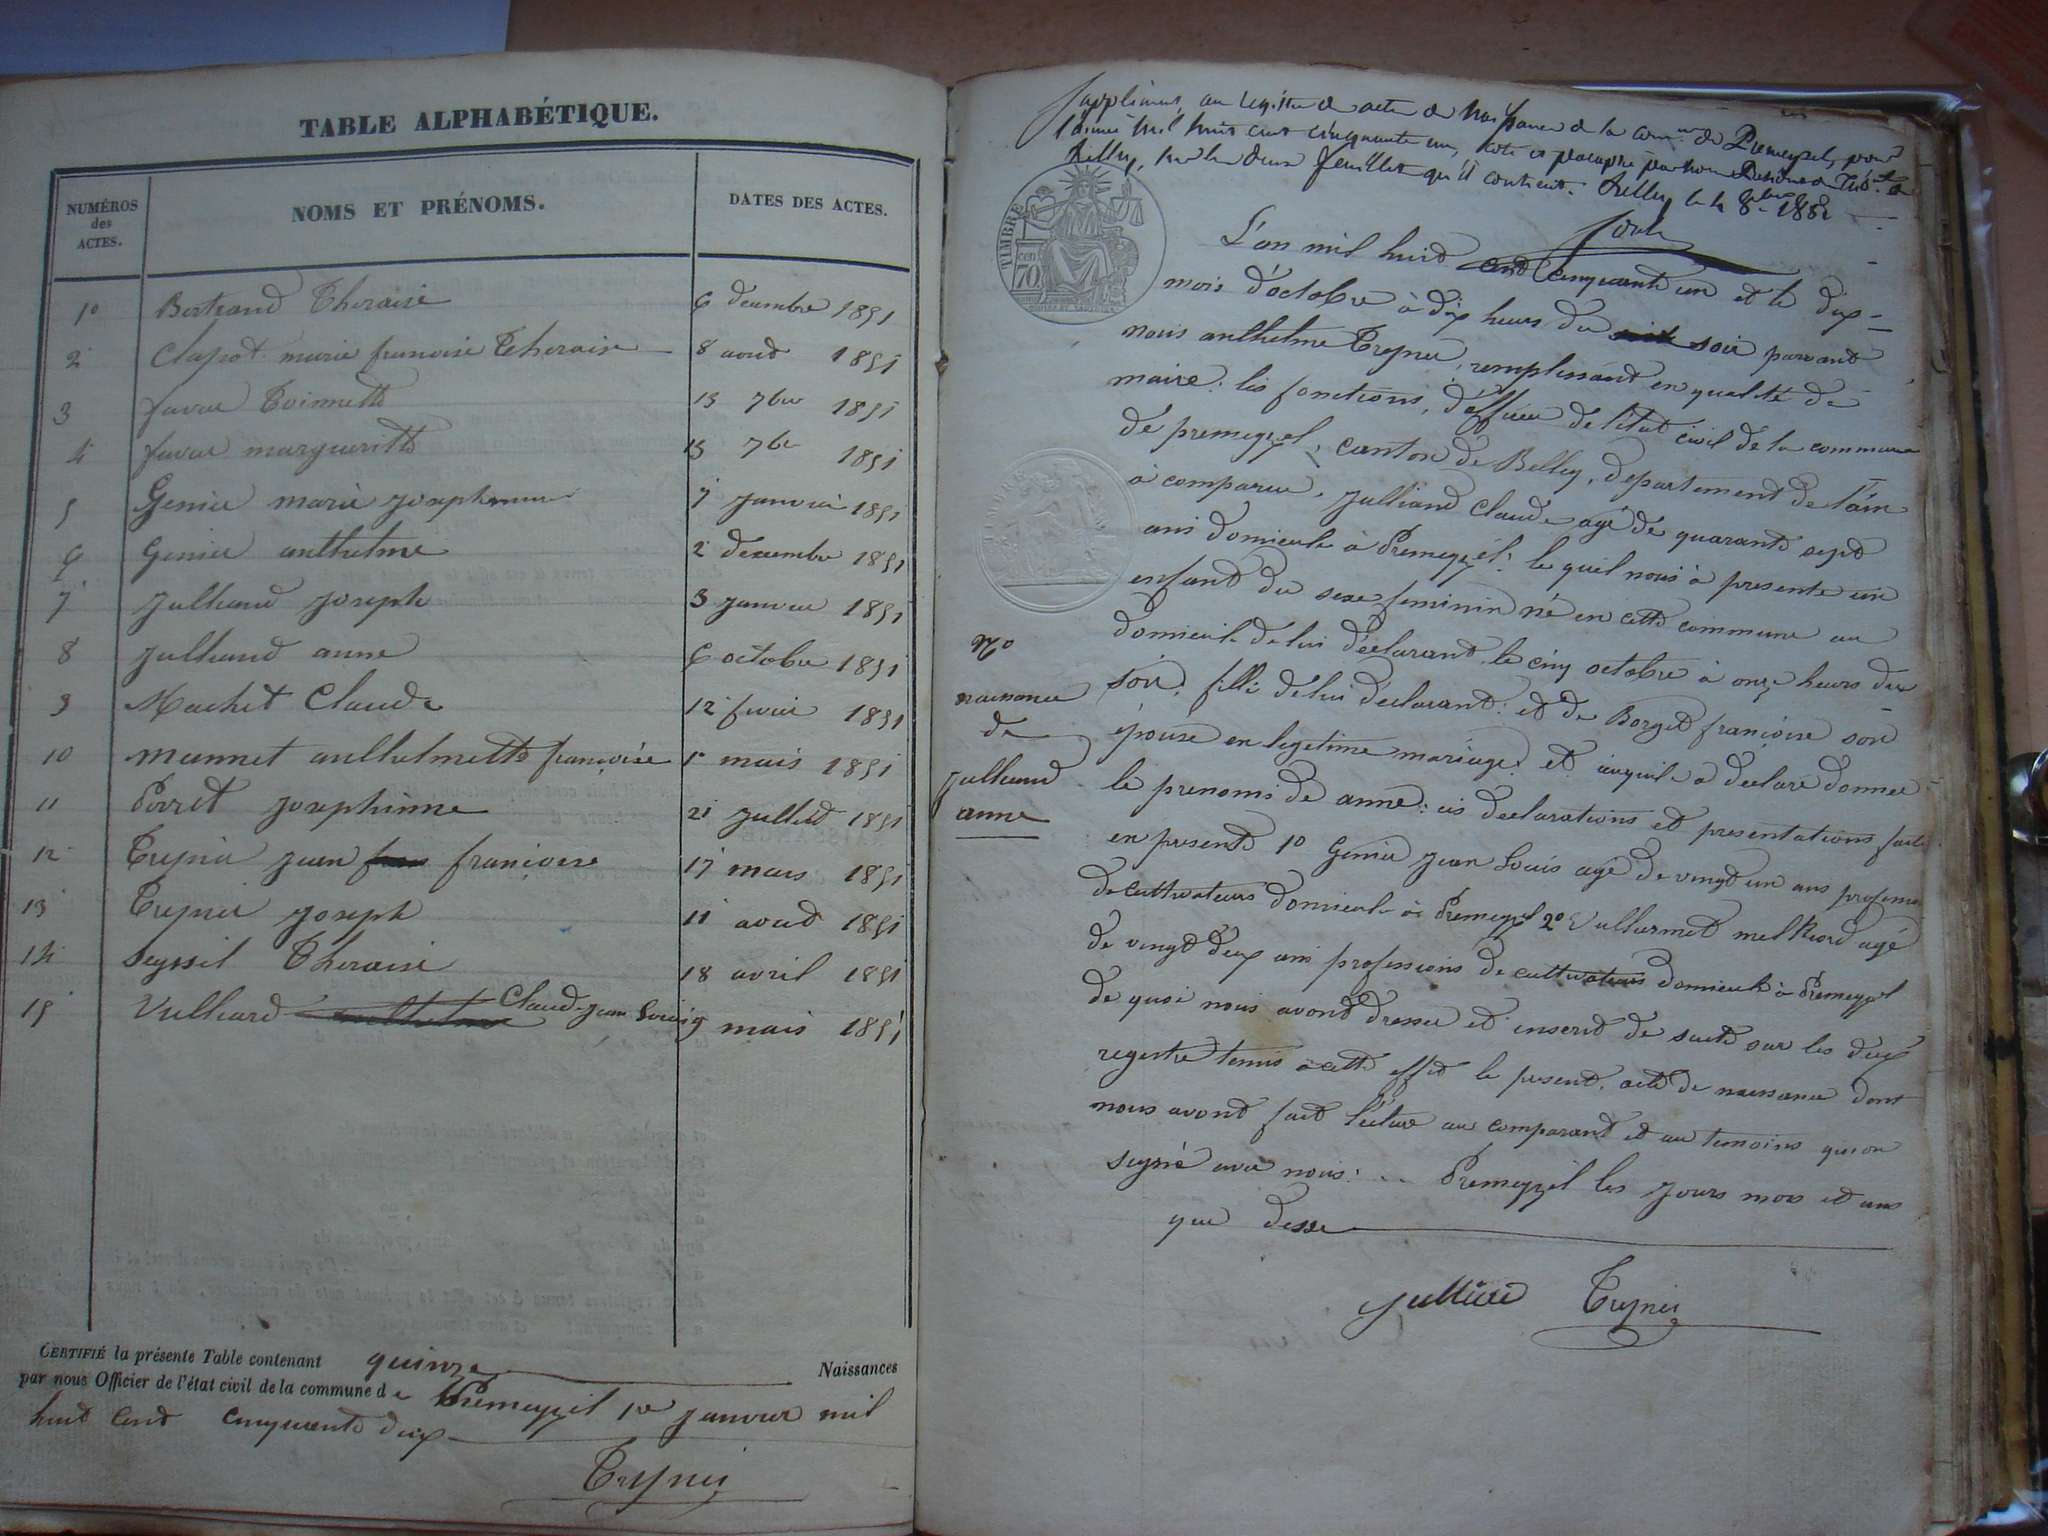 TABLE ALPHABÉTIQUE.
NUMÉROS des ACTES.
NOMS ET PRÉNOMS.
DATES DES ACTES.
1º Bertrand Theraise 6 decembre 1851
2 Clapot marie francoise Theraise 8 aout 1851
3 favre Toinnette 13 7bre 1851
4 favre margueritte 13 7bre 1851
5 Genier marie josephinne 7 janvier 1851
6 Genier anthelme 2 decembre 1851
7 julliand joseph 3 janvier 1851
8 julliand anne 6 octobre 1851
9 Machet Claude 12 fevrier 1851
10 monnet anthelmette françoise 1r mais 1851
11 Perret josephinne 21 juillet 1851
12 Treynier jean françoise 17 mars 1851
13 Treynier joseph 11 aout 1851
14 Seyssel Theraise 18 avril 1851
15 Vulliard Claude jean Louis 9 mais 1851
CERTIFIÉ la présente Table contenant quinze Naissances
par nous Officier de l'état civil de la commune de Premeyzel 1er janvier mil
huit cent cinquante deux
Treynier
Supplément au registre de acte de Naissance de la comune de Premeyzel, pour
l'année mil huit cent cinquante un, coté et paraphé par nous Président du Trib.al de
Belley, sur les deux feuilles qu'il contient. Belley le 4 8bre 1851
TIMBRE
70 cen
L'an mil huit cent cinquante un et le dix
mois d'octobre à dix heurs du soir parvant
nous anthelme Treynier, remplissant en qualité de
maire: les fonctions, d'officier de l'état civil de la commune
de premeyzel, canton de Belley, departement de l'ain
à comparue, julliand Claude agé de quarante sept
ans domicile à Premeyzel: le quel nous à presente un
enfant du sexe feminin né en cette commune au
domicile de lui déclarant le cinq octobre à onze heurs du
soir; fille de lui déclarant: et de Borget françoise son
épouse en legetime mariage: et auquile a declare donner
le prenoms de anne: cis declarations et presentations faite
en presente 1º Genier jean Louis agé de vingt un ans profession
de cultivateurs domicile à Premeyzel 2º Vullermet melkiord agé
de vingt deux ans professions de cultivateurs domicile à Premeyzel
de quoi nous avont dresser et inscrit de suite sur les deux
registre tenus à cette effet le present. acte de naissance dont
nous avont fait lecture au comparant et au temoins qui on
seyné avec nous: .. Premeyzel les jours mois et ans
que desse
Nº
naissance
de
julliand
anne
julliand Treynier